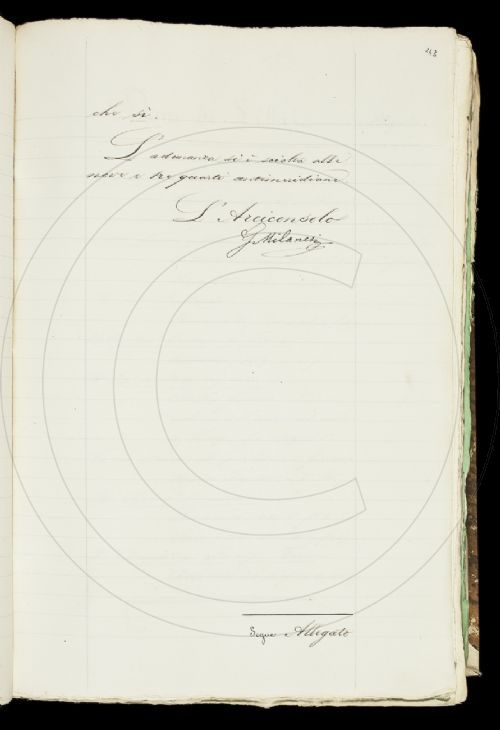 243
che si.
L'adunanza si è sciolta alle
nove e tre quarti antimeridiane
L'Arciconsolo
G Milanesi
Segue Allegato